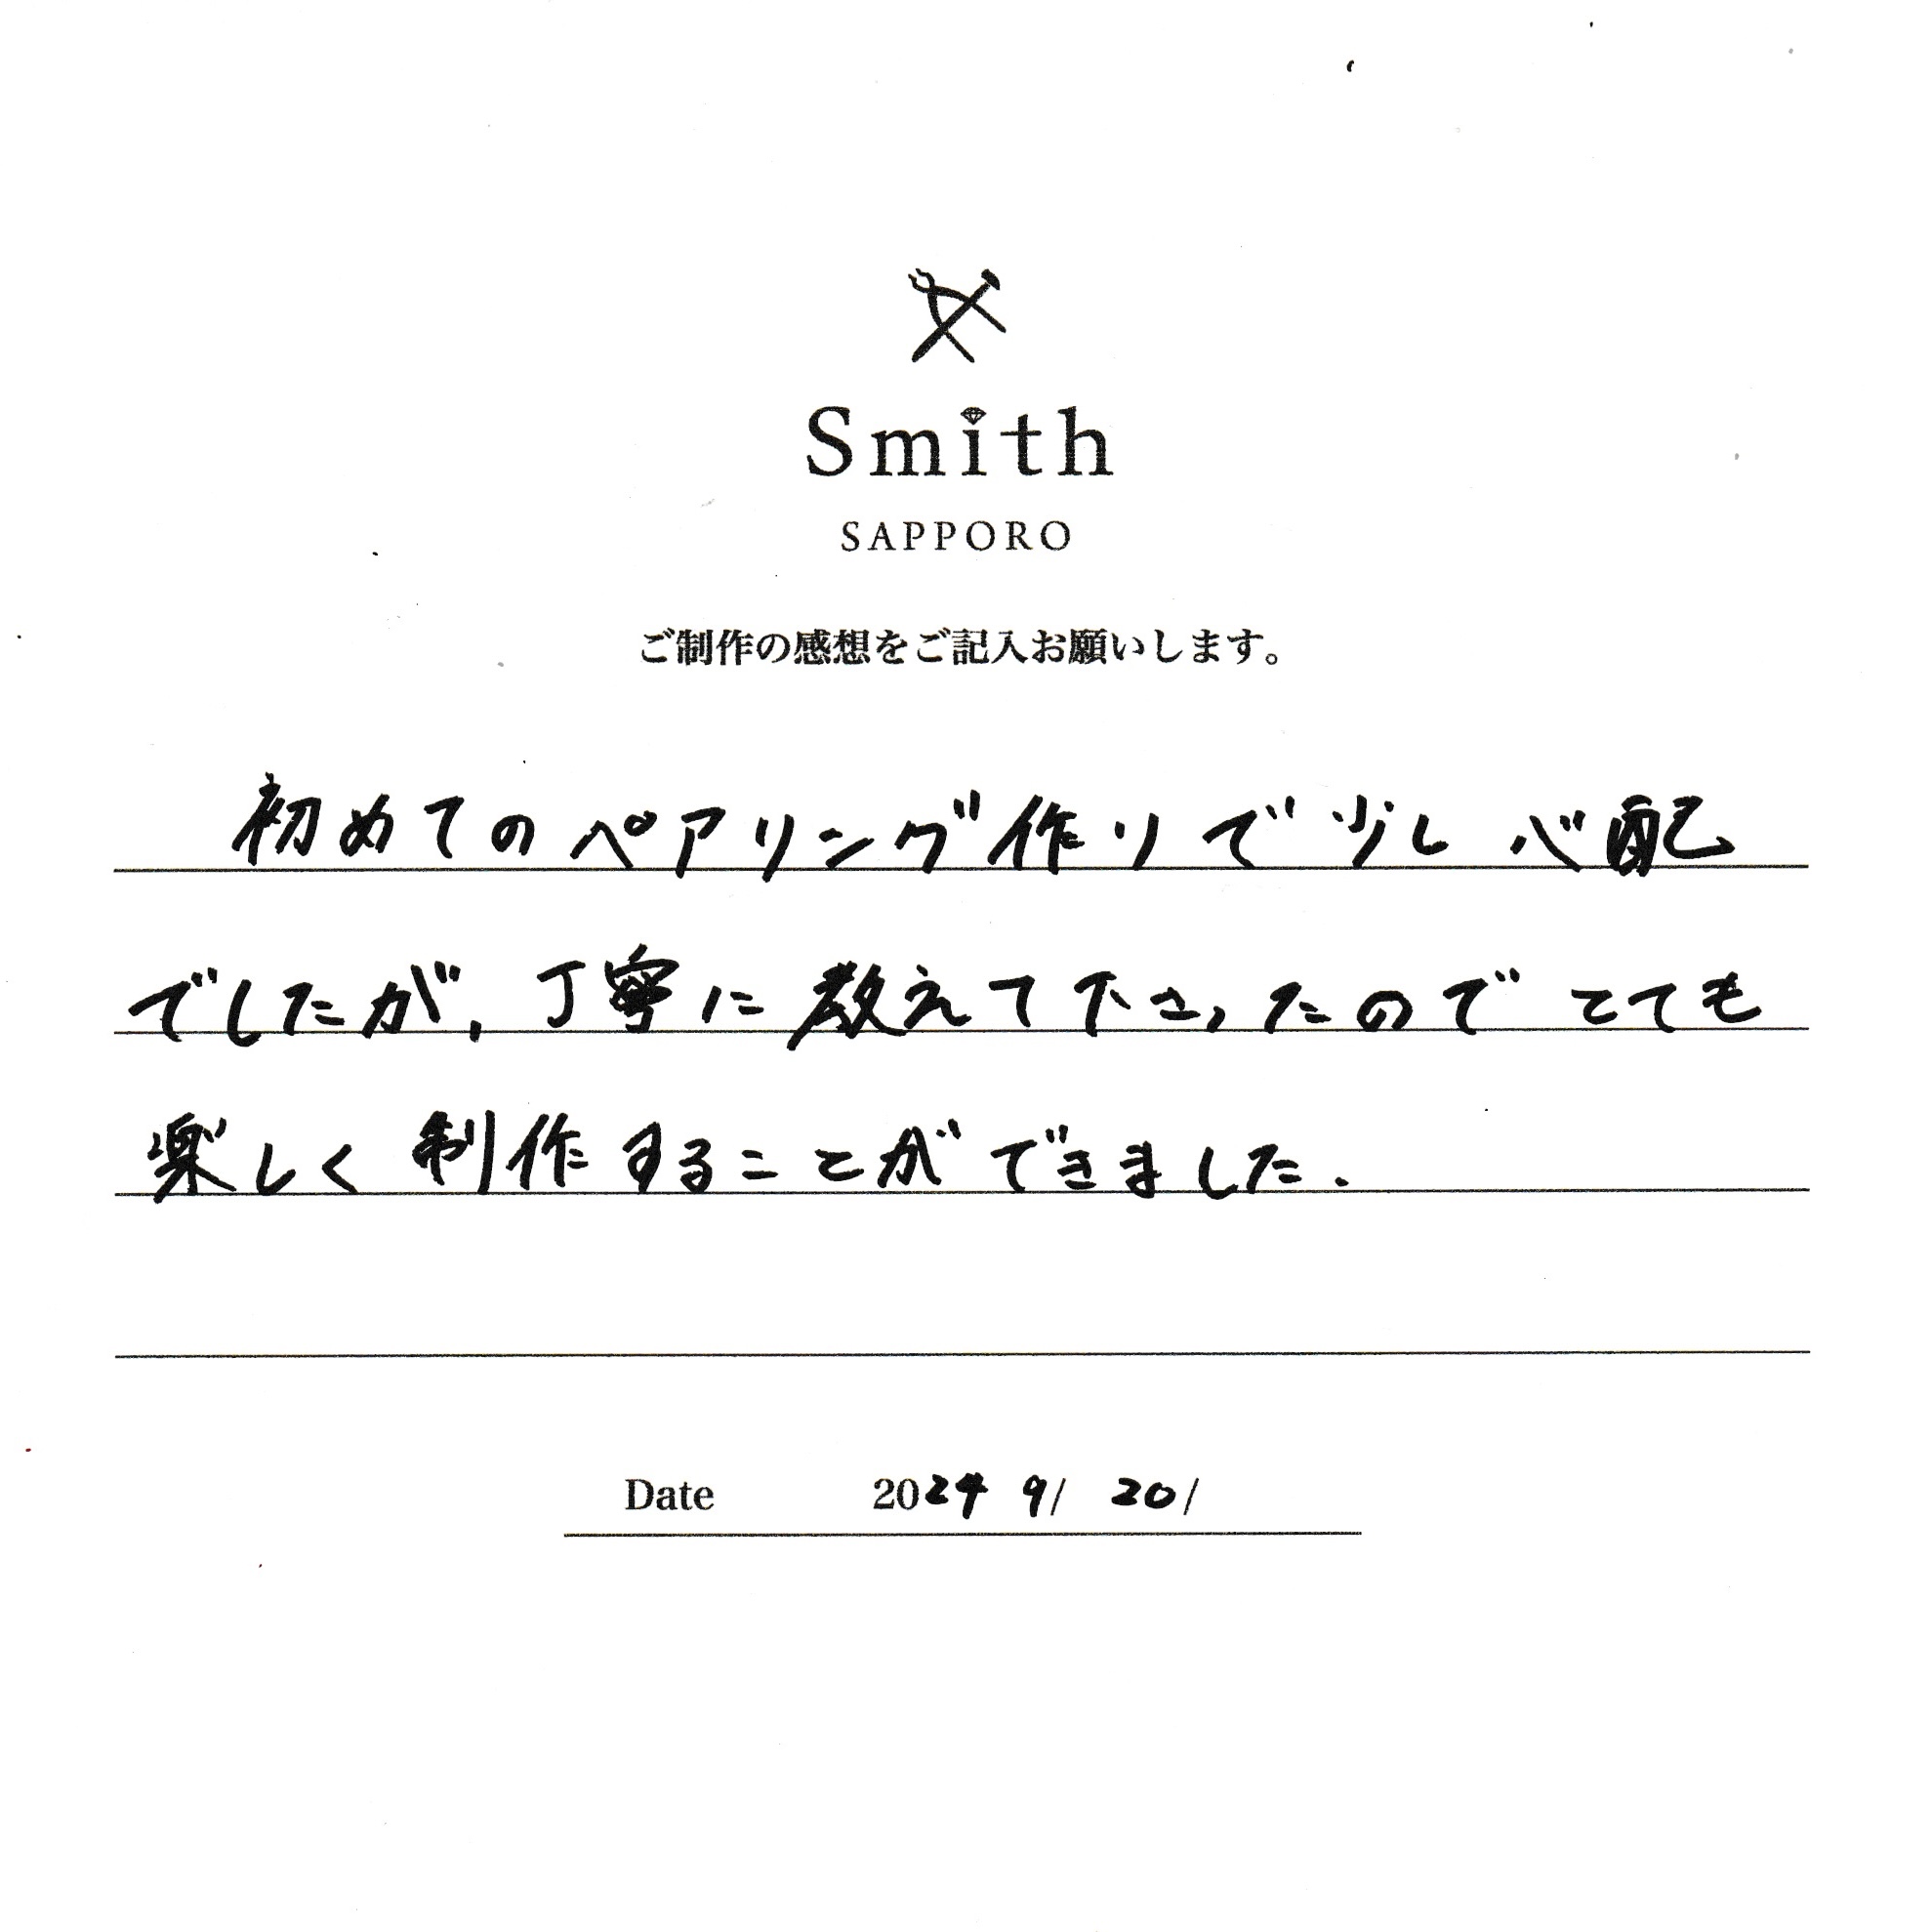 Smith
SAPPORO
ご制作の感想をご記入お願いします。
初めてのペアリング作りで少し心配
でしたが、丁寧に教えて下さったのでとても
楽しく制作することができました.
Date 2024 9/ 20/